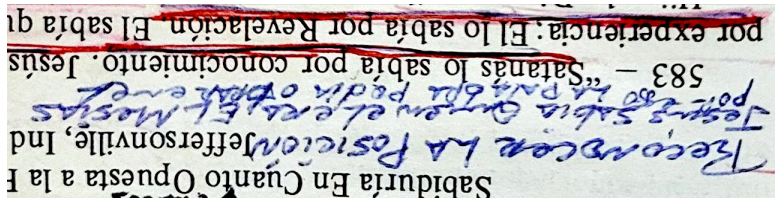 Sabiduría En Cuanto Opuesta a la F
RECONOCER LA POSICIÓN Jeffersonville, Ind
Jesus sabia quien el era, EL Mesías
por eso LA Palabra podia obrar en el
583 – “Satanás lo sabía por conocimiento. Jesús
por experiencia; El lo sabía por Revelación. El sabía qu